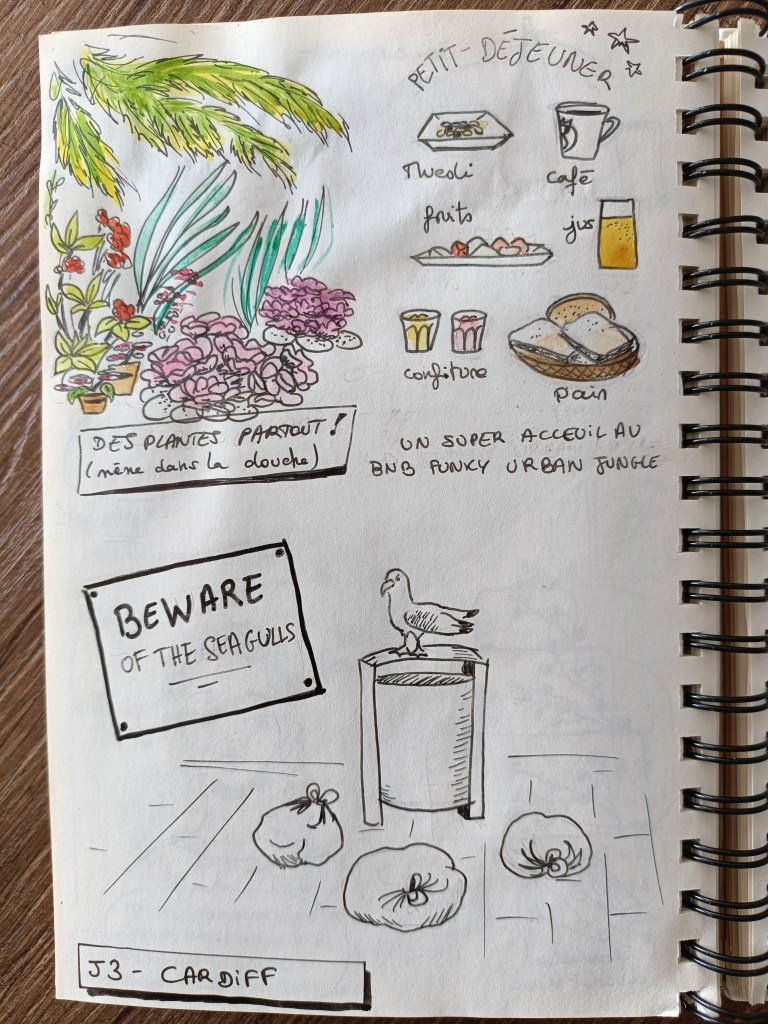 PETIT-DÉJEUNER
Muesli
café
fruits
jus
confiture
pain
DES PLANTES PARTOUT !
(même dans la douche)
UN SUPER ACCEUIL AU
BNB FUNKY URBAN JUNGLE
BEWARE
OF THE SEAGULLS
J3 - CARDIFF